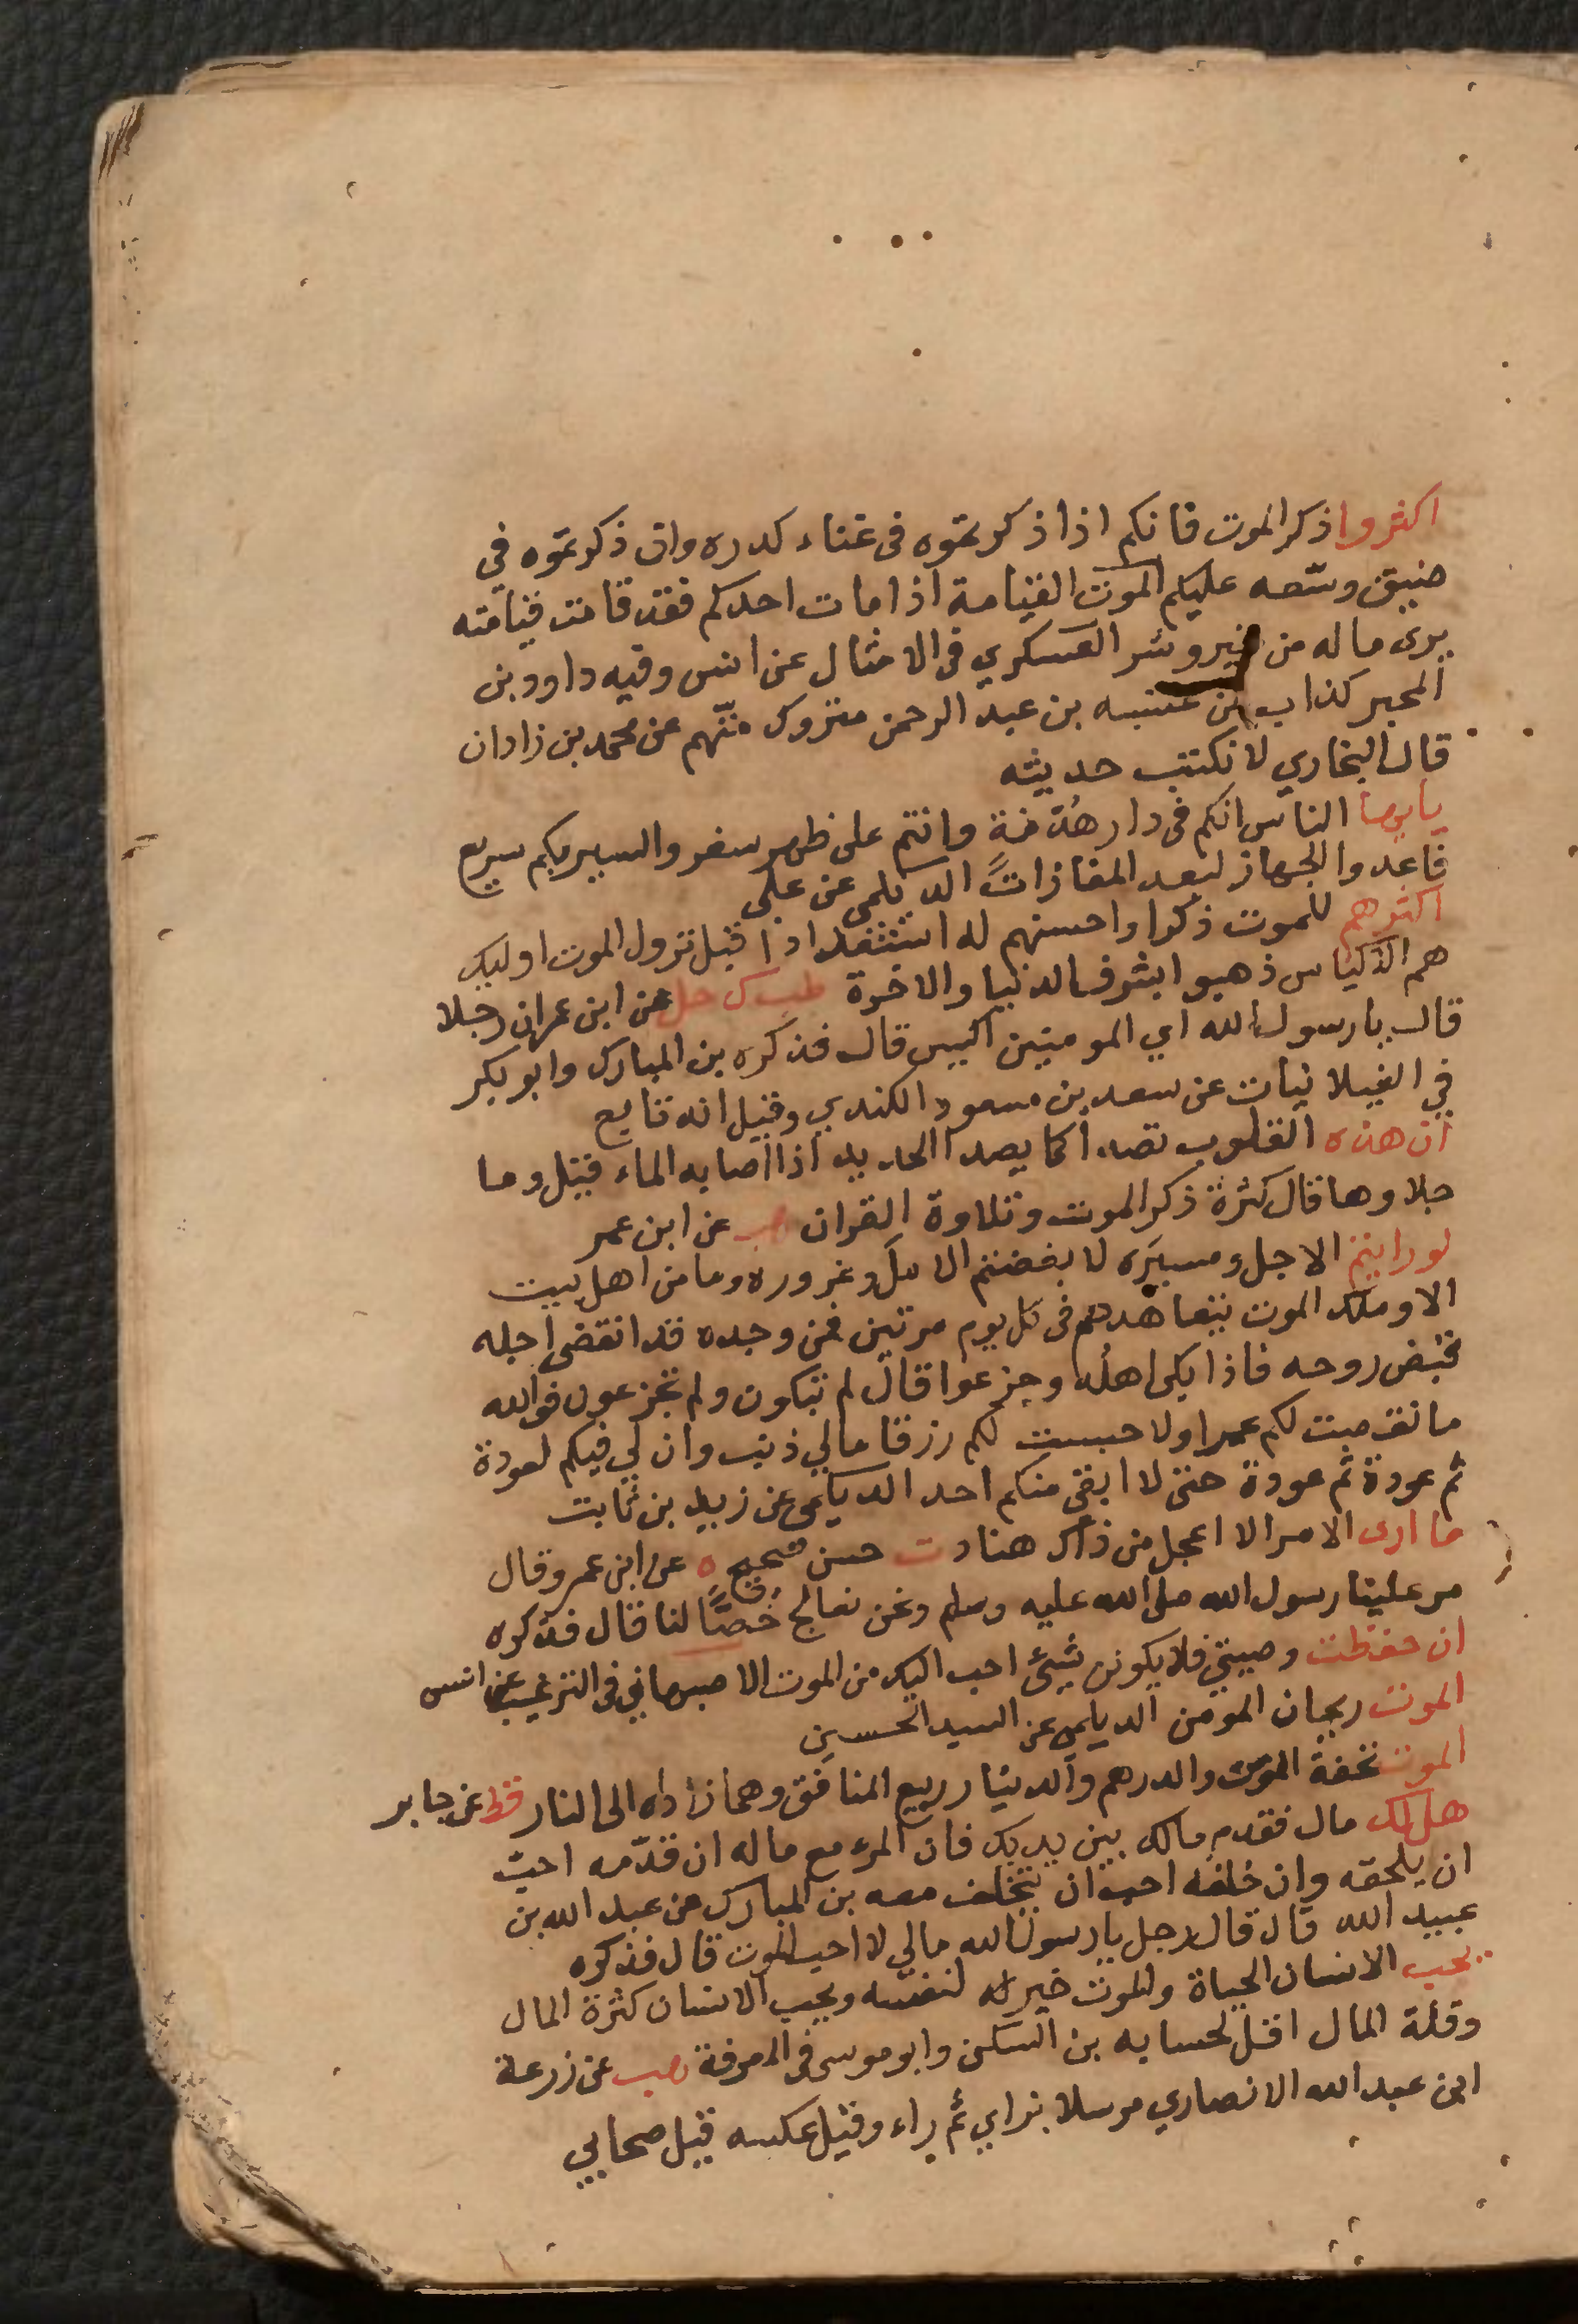 اكثروا ذكر الموت فانكم اذا ذكرتموه في غناء كدره وان ذكرتموه في
ضيق وسّعه عليكم الموت القيامة اذا مات احدكم فقد قامت قيامته
يرى ماله من خير وشر العسكري في الامثال عن انس وفيه داوود بن
المحبر كذاب عن عنبسه بن عبد الرحمن متروك متّهم عن محمد بن زادان
قال البخاري لا نكتب حديثه
يايها الناس انكم في دار هُدْنة وانتم على ظهر سفر والسير بكم سريع
فاعدوا الجهاز لبعد المفازات الديلمي عن علي
اكثرهم للموت ذكرا واحسنهم له استعدادا قبل نزول الموت اوليك
هم الاكياس ذهبوا بشرف الدنيا والاخرة طب ك حل عن ابن عمران رجلا
قال يا رسول الله اي المومنين اكيس قال فذكره بن المبارك وابو بكر
في الغيلانيات عن سعد بن مسعود الكندي وقيل انه تابع
ان هذه القلوب تصدأ كما يصدا الحديد اذا اصابه الماء قيل وما
جلاوها قال كثرة ذكر الموت وتلاوة القران هب عن ابن عمر
لو رايتم الاجل ومسيرَه لابغضتم الامل وغروره وما من اهل بيت
الا وملك الموت يتعاهدهم في كل يوم مرتين فمن وجده قد انقضى اجله
قبض روحه فاذا بكى اهلُه وجزعوا قال لم تبكون ولم تجزعون فوالله
ما نقصت لكم عمرا ولا حبست لكم رزقا مالي ذنب وان لي فيكم لعودة
ثم عودة ثم عودة حتى لا ابقي منكم احد الديلمي عن زيد بن ثابت
ما ارى الامر الا اعجل من ذاك هناد ت حسن صحيح ه عن ابن عمر وقال
مر علينا رسول الله صلى الله عليه وسلم ونحن نعالج خُصًّا لنا قال فذكره
ان حفظت وصيتي فلا يكونن شيئ احب اليك من الموت الاصبهاني في الترغيب عن انس
الموت ريحان المومن الديلمي عن السيد الحسين
الموت تحفة المومن والدرهم والدينار ربيع المنافق وهما زاداه الى النار قط عن جابر
هل لك مال فقدم مالك بين يديك فان المرء مع ماله ان قدّمه احبّ
ان يلحقه وان خلفه احب ان يتخلف معه بن المبارك عن عبد الله بن
عبيد الله قال قال رجل يا رسول الله مالي لا احب الموت قال فذكره
يحب الانسان الحياة والموت خير له لنفسه ويحب الانسان كثرة المال
وقلة المال اقل لحسابه بن السكن وابو موسى في المعرفة هب عن زرعة
ابن عبد الله الانصاري مرسلا بزاي ثم راء وقيل عكسه قيل صحابي